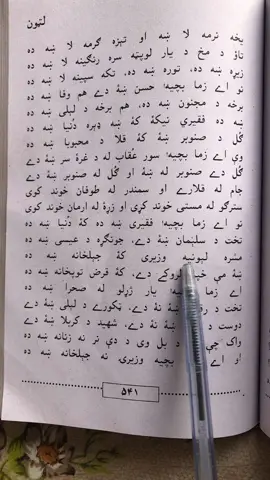 لټون
يخه نرمه لا ښه او تېزه ګرمه لا ښه ده
تاؤ د مخ د يار لوپټه سره رنګينه لا ښه ده
زېړه ښه ده، توره ښه ده، تکه سپينه لا ښه ده
نو اے زما بچيه! حسن ښهٔ دے هم وفا ښه ده
برخه د مجنون ښه ده، هم برخه د ليلىٰ ښه ده
ښه ده فقيري نيکهٔ کهٔ ښه ډېره دُنيا ښه ده
ګُل د صنوبر ښهٔ کهٔ قلا د محبوبا ښه ده
وې اے زما بچيه! سور عُقاب له د غرهٔ سر ښهٔ دے
ګُل دے صنوبر له ښهٔ او ګُل له صنوبر ښهٔ دے
جام له قلارے او سمندر له طوفان خوند کوى
سترګو له مستى خوند کړى او زړهٔ له ارمان خوند کوى
نو اے زما بچيه! فقيرى ښه ده کهٔ دُنيا ښه ده
تخت د سلېمان ښهٔ دے، جونګړه د عيسىٰ ښه ده
منبره ليونيه وزيري کهٔ جېلخانه ښه ده
ښهٔ مې دے، کهٔ قرض توپخانه ښه ده
اے زما يار ژړلو له صحرا ښه ده
تخت د ښهٔ نهٔ دے، ټکورے د ليلىٰ ښهٔ دے
دوست د ښهٔ نهٔ دے، شهيد د کربلا ښهٔ دے
واک چې د بل وى د دې نر نه زنانه ښه ده
او اے بچيه وزيرۍ نه جېلخانه ښه ده
۵۴۱